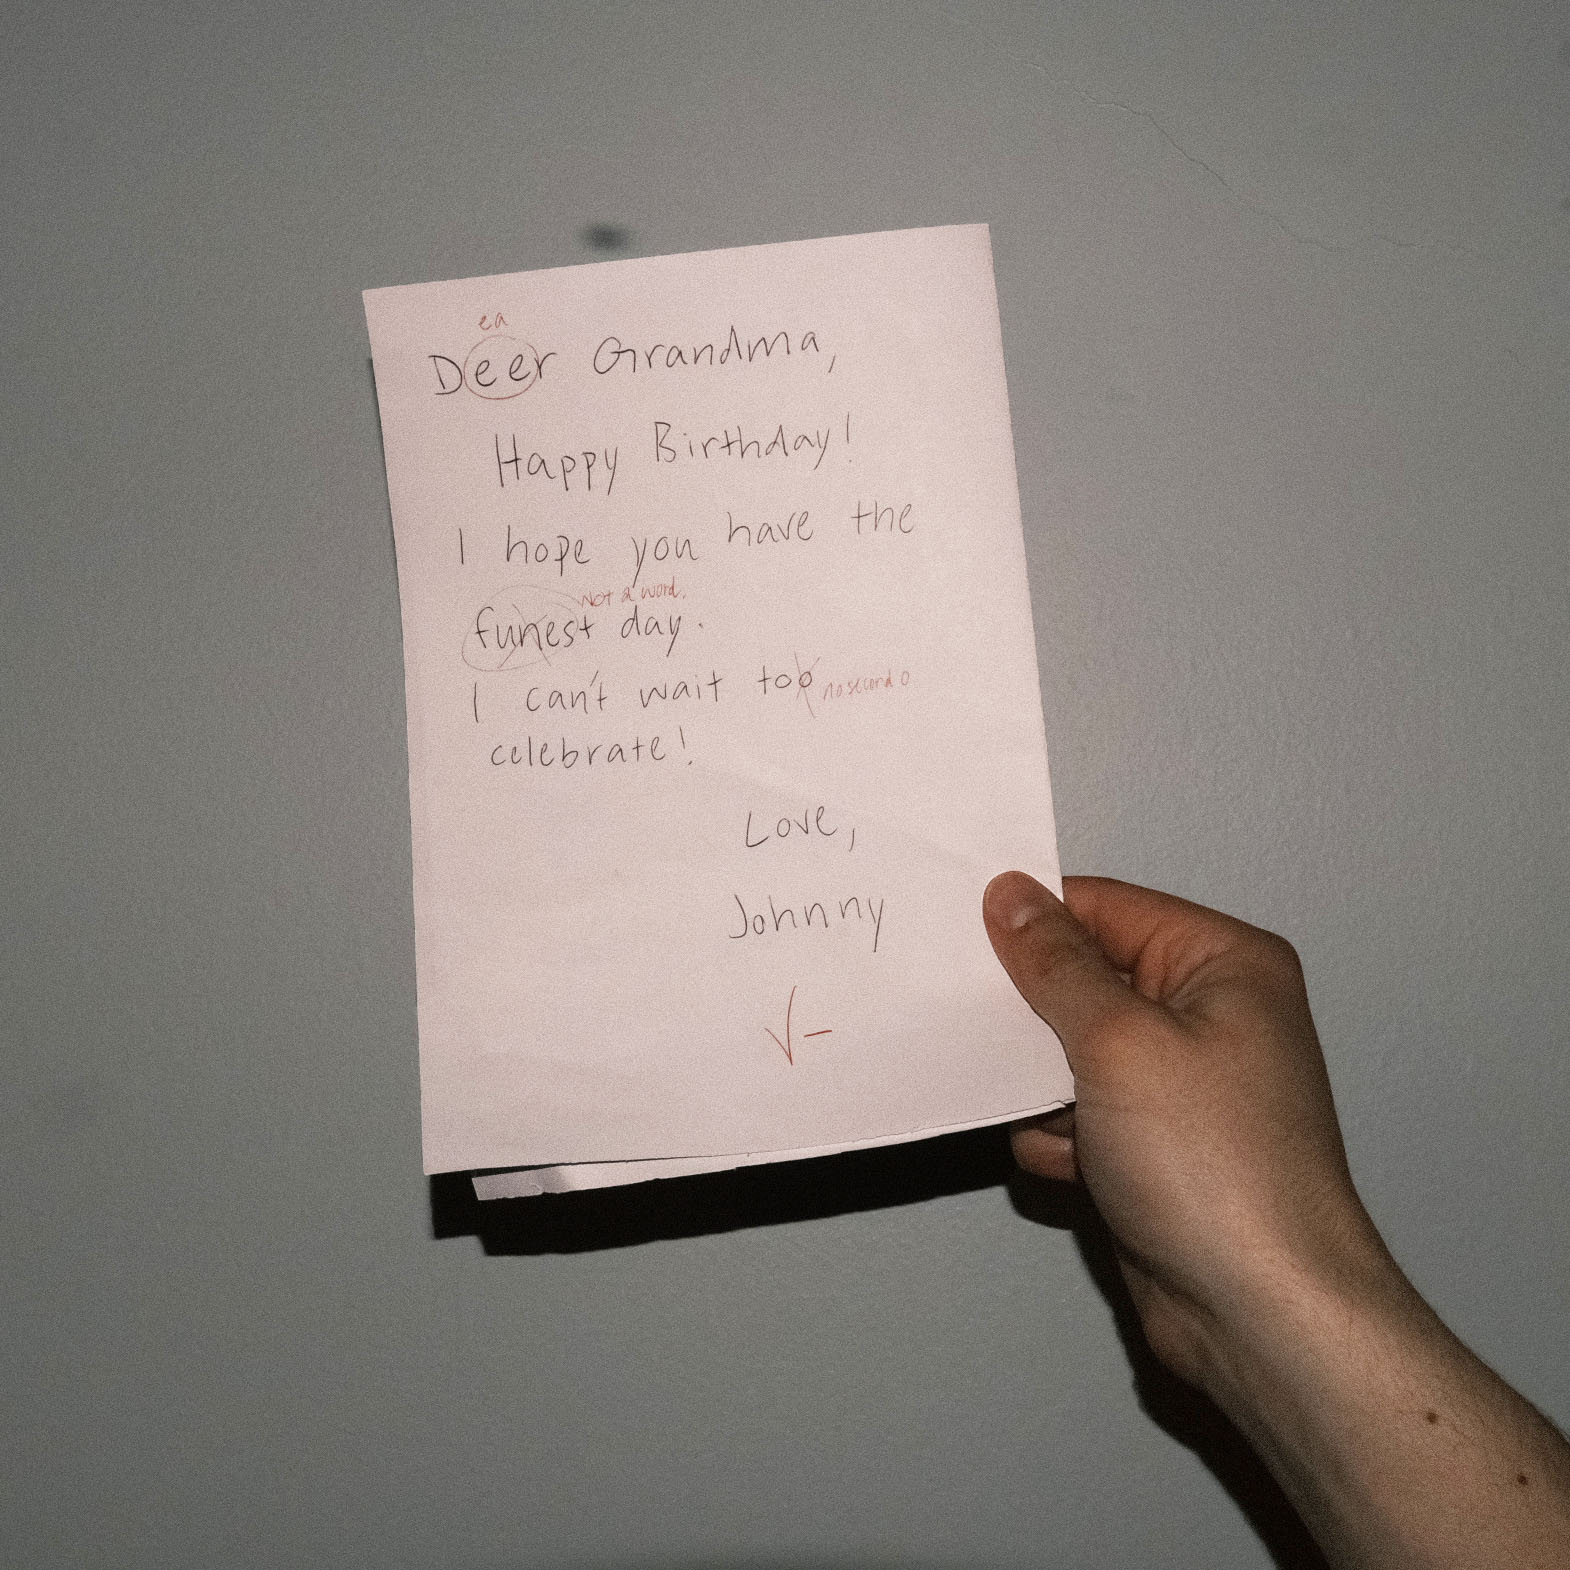 ea
Deer Grandma,
Happy Birthday!
I hope you have the
Not a word.
funest day.
I can't wait too no second o
celebrate!
Love,
Johnny
√-